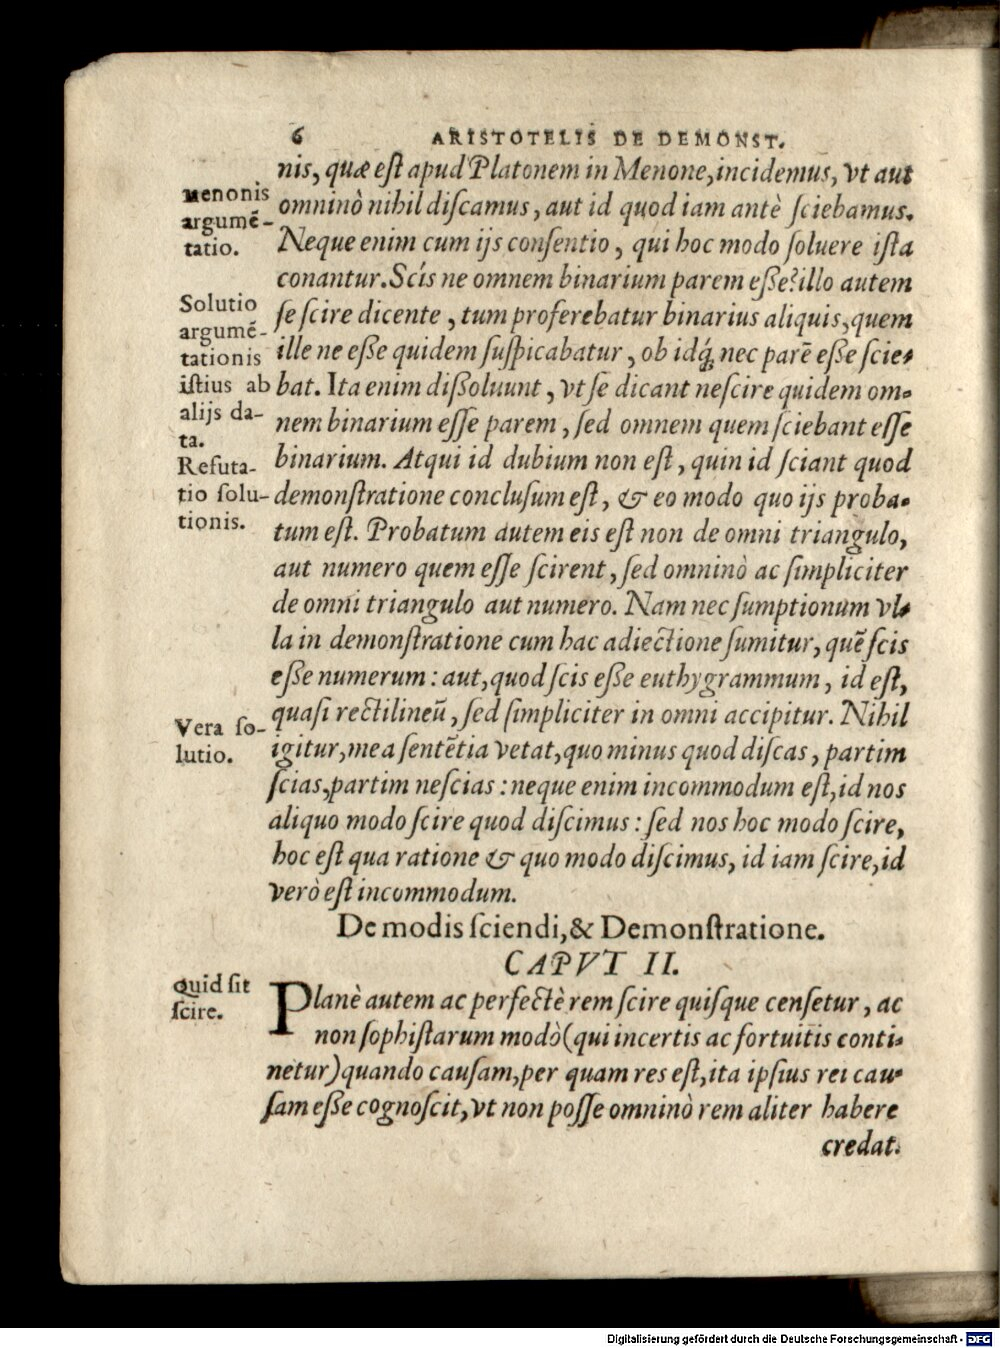 6 ARISTOTELIS DE DEMONST.
nis, quæ eſt apud Platonem in Menone, incidemus, vt aut
omninò nihil diſcamus, aut id quod iam antè ſciebamus.
Neque enim cum ijs conſentio, qui hoc modo ſoluere iſta
conantur. Scís ne omnem binarium parem eſſe? illo autem
ſe ſcire dicente, tum proferebatur binarius aliquis, quem
ille ne eſſe quidem ſuſpicabatur, ob idq́; nec parē eſſe ſcie-
bat. Ita enim diſſoluunt, vt ſe dicant neſcire quidem om-
nem binarium eſſe parem, ſed omnem quem ſciebant eſſe
binarium. Atqui id dubium non eſt, quin id ſciant quod
demonſtratione concluſum eſt, & eo modo quo ijs proba-
tum eſt. Probatum autem eis eſt non de omni triangulo,
aut numero quem eſſe ſcirent, ſed omninò ac ſimpliciter
de omni triangulo aut numero. Nam nec ſumptionum vl-
la in demonſtratione cum hac adiectione ſumitur, quē ſcis
eſſe numerum: aut, quod ſcis eſſe euthygrammum, id eſt,
quaſi rectilineū, ſed ſimpliciter in omni accipitur. Nihil
igitur, mea ſentētia vetat, quo minus quod diſcas, partim
ſcias, partim neſcias: neque enim incommodum eſt, id nos
aliquo modo ſcire quod diſcimus: ſed nos hoc modo ſcire,
hoc eſt qua ratione & quo modo diſcimus, id iam ſcire, id
verò eſt incommodum.
Menonis
argumē-
tatio.
Solutio
argumē-
tationis
iſtius ab
alijs da-
ta.
Refuta-
tio ſolu-
tionis.
Vera ſo-
lutio.
De modis ſciendi, & Demonſtratione.
CAPVT II.
Quid ſit
ſcire.
Planè autem ac perfectè rem ſcire quiſque cenſetur, ac
non ſophiſtarum modò (qui incertis ac fortuitis conti-
netur) quando cauſam, per quam res eſt, ita ipſius rei cau-
ſam eſſe cognoſcit, vt non poſſe omninò rem aliter habere
credat.
Digitalisierung gefördert durch die Deutsche Forschungsgemeinschaft - DFG